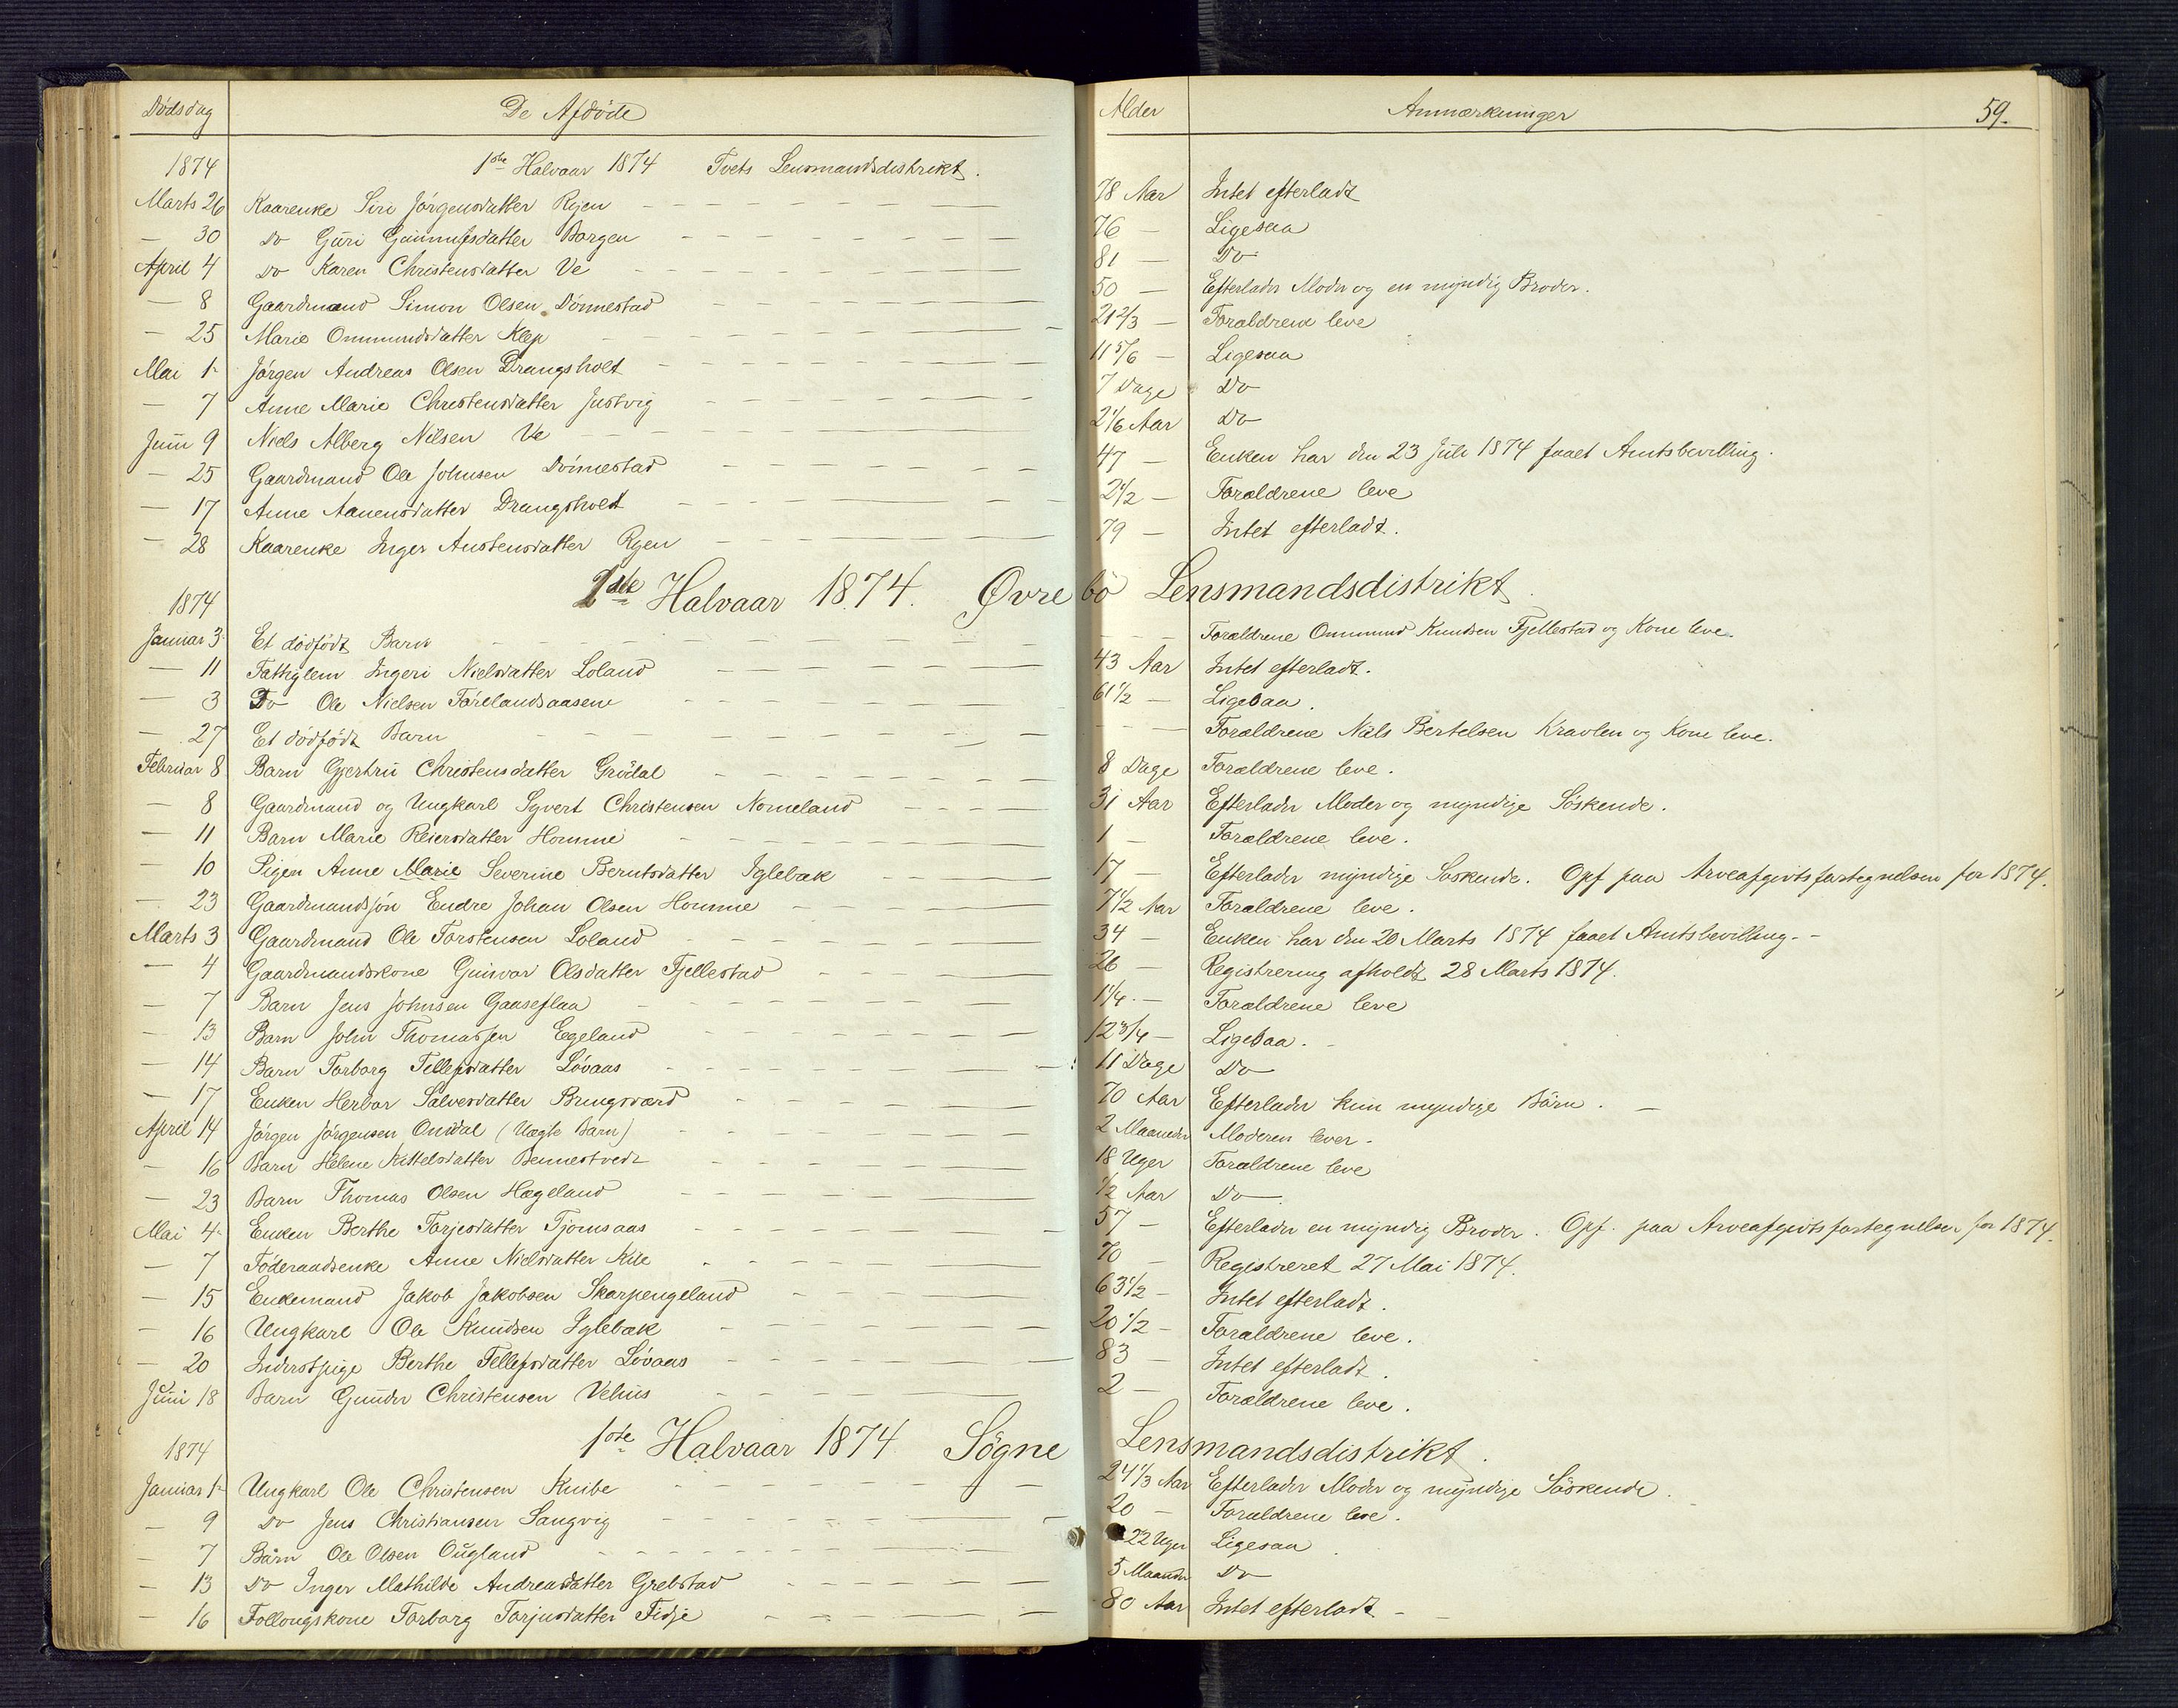 Dødsdag De Afdöde Alder Anmærkninger 59.
1874 1ste Halvaar 1874 Tvets Lensmandsdistrikt.
Marts 26 Kaarenke Siri Jörgensdatter Ryen 78 Aar Intet efterladt
— 30 Do Guri Gunnufsdatter Borgen 76 — Ligesaa
April 4 Do Karen Christensdatter Ve 81 — Do
— 8 Gaardmand Simon Olsen Dönnestad 50 — Efterlader Moder og en myndig Broder.
— 25 Marie Ommundsdatter Klep 21 2/3 — Forældrene leve
Mai 1 Jörgen Andreas Olsen Drangsholt 11 5/6 — Ligesaa
— 7 Anne Marie Christensdatter Justvig 7 Dage Do
Juni 9 Niels Alberg Nilsen Ve 2 1/6 Aar Do
— 25 Gaardmand Ole Johnsen Dönnestad 47 — Enken har den 23 Juli 1874 faaet Amtsbevilling.
— 17 Anne Aanensdatter Drangsholt 2 1/2 — Forældrene leve
— 28 Kaarenke Inger Austensdatter Ryen 79 — Intet efterladt.
1874 1ste Halvaar 1874. Øvrebö Lensmandsdistrikt.
Januar 3 Et dödfödt Barn — — — Forældrene Ommund Knudsen Fjellestad og Kone leve.
— 11 Fattiglem Ingeri Nielsdatter Loland 43 Aar Intet efterladt.
— 3 Do Ole Nielsen Förelandsaasen 61 1/2 — Ligesaa.
— 27 Et dödfödt Barn — — — Forældrene Niels Bertelsen Kravlen og Kone leve.
Februar 8 Barn Gjertru Christensdatter Grödal 8 Dage Forældrene leve.
— 8 Gaardmand og Ungkarl Syvert Christensen Nomeland 31 Aar Efterlader Moder og myndige Söskende.
— 11 Barn Marie Reiersdatter Homme 1 — Forældrene leve.
— 10 Pigen Anne Marie Severine Berntsdatter Iglebæk 17 — Efterlader myndige Söskende. Opf paa Arveafgivtsfortegnelsen for 1874.
— 23 Gaardmandsjön Endre Johan Olsen Homme 7 1/2 Aar Forældrene leve.
Marts 3 Gaardmand Ole Torstensen Loland 34 — Enken har den 20 Marts 1874 faaet Amtsbevilling.
— 4 Gaardmandskone Gunvor Olsdatter Fjellestad 26 — Registrering afholdt 28 Marts 1874.
— 7 Barn Jens Johnsen Gaaseflaa 1 1/4 — Forældrene leve
— 13 Barn John Thomassen Egeland 12 3/4 — Ligesaa.
— 14 Barn Torborg Tellefsdatter Lövaas 11 Dage Do
— 17 Enken Herbor Salvesdatter Bringsværd 70 Aar Efterlader kun myndige Börn.
April 14 Jörgen Jörgensen Omdal (Uægte Barn) 2 Maaneder Moderen lever.
— 16 Barn Helene Kittelsdatter Bennestvedt 18 Uger Forældrene leve
— 23 Barn Thomas Olsen Hægeland 1/2 Aar Do
Mai 4 Enken Berthe Torjesdatter Tjomsaas 57 — Efterlader en myndig Broder. Opf. paa Arveafgivtsfortegnelsen for 1874.
— 7 Föderaadsenke Anne Nielsdatter Kile 70 — Registreret 27 Mai 1874.
— 15 Enkemand Jakob Jakobsen Skarpengeland 63 1/2 — Intet efterladt.
— 16 Ungkarl Ole Knudsen Iglebæk 20 1/2 — Forældrene leve.
— 20 Inderstpige Berthe Tellefsdatter Lövaas 83 — Intet efterladt.
Juni 18 Barn Gunder Christensen Vehus 2 — Forældrene leve.
1874 1ste Halvaar 1874 Sögne Lensmandsdistrikt.
Januar 1 Ungkarl Ole Christensen Knibe 24 1/3 Aar Efterlader Moder og myndige Söskende.
— 9 Do Jens Christiansen Langvig 20 — Forældrene leve.
— 7 Barn Ole Olsen Ougland 22 Uger Ligesaa.
— 13 Do Inger Mathilde Andreasdatter Grebstad 5 Maaneder Do
— 16 Follougskone Torborg Torjusdatter Fidje 80 Aar Intet efterladt